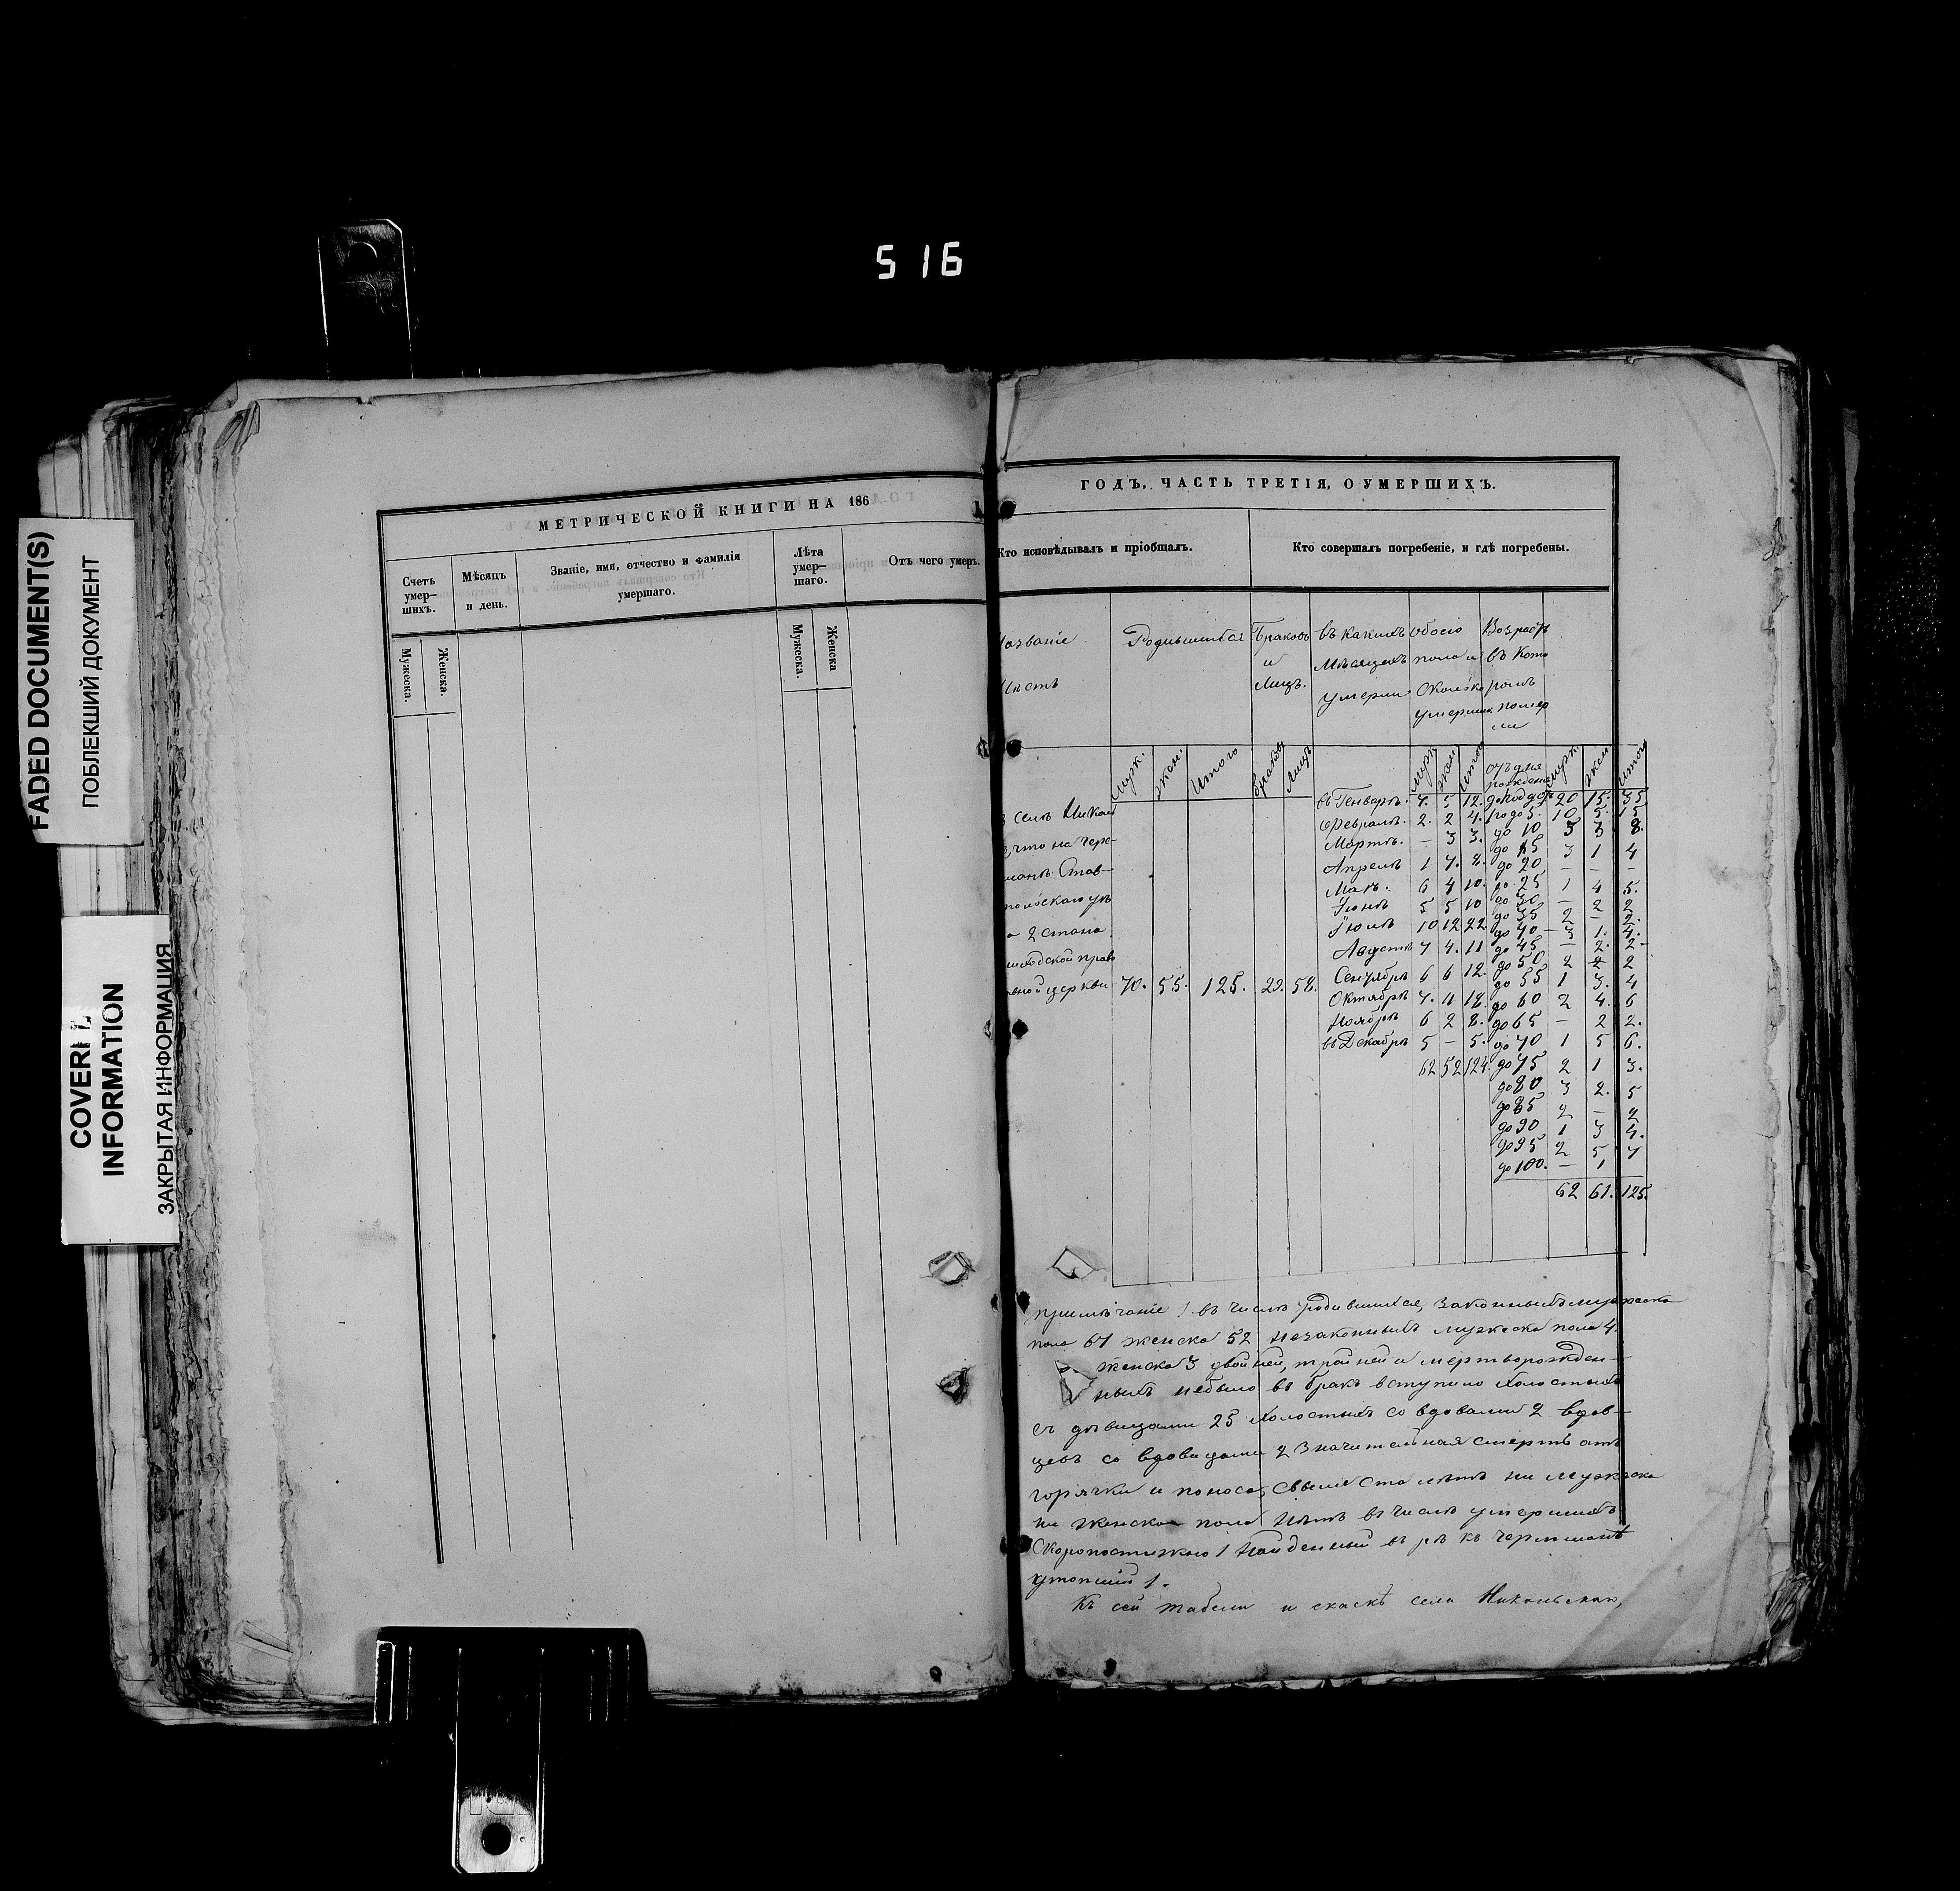 516
FADED DOCUMENT(S)
ПОБЛЕКШИЙ ДОКУМЕНТ
COVER
INFORMATION
ЗАКРЫТАЯ ИНФОРМАЦИЯ
МЕТРИЧЕСКОЙ КНИГИ НА 186
Счетъ умер-шихъ.
Мѣсяцъ и день.
Званіе, имя, отчество и фамилія умершаго.
Лѣта умер-шаго.
Отъ чего умеръ.
Мужеска. Женска. Мужеска. Женска
ГОДЪ, ЧАСТЬ ТРЕТІЯ, О УМЕРШИХЪ.
Кто исповѣдывалъ и пріобщалъ.
Кто совершалъ погребеніе, и гдѣ погребены.
азваніе
мѣстъ
Родившихся
Браковъ
и
Лицъ.
въ какихъ
мѣсяцахъ
умерли
обоего
пола и
сколько
умерших
Возрастъ
въ кото
ромъ
помер
ли
муж. жен. итого браков лицъ муж жен итог отъ дня рожденія муж. жен итог
селѣ Никол
что на Чере-
шанѣ Став-
польскаго уѣ
2 стана
иходской прав
авной церкви 70. 55. 125. 29. 58.
въ Генварѣ. 7. 5 12. до года 20 15. 35
Февралѣ. 2. 2 4. 1 го до 5. 10 5. 15
Мартѣ. — 3 3. до 10 5 3 8.
Апрелѣ 1 7. 8. до 15 3 1 4
до 20 — — —
Маѣ. 6 4 10. до 25 1 4 5.
Іюнѣ 5 5 10 до 30 — 2 2
Іюлѣ 10 12 22 до 35 2 — 2.
до 40 3 1. 4.
Августѣ 7 4. 11 до 45 — 2. 2
до 50 2 2
Сентябрѣ 6 6 12. до 55 1 3. 4
Октябрѣ 7. 11 18. до 60 2 4. 6
Ноябрѣ 6 2 8. до 65 — 2 2.
въ Декабрѣ 5 — 5. до 70 1 5 6.
62 52 124. до 75 2 1 3.
до 80 3 2. 5
до 85 2 — 2
до 90 1 3 4.
до 95 2 5 7
до 100. — 1
62 61. 125.
примѣчаніе 1. въ числѣ родившихся, законныхъ мужеска
пола 67 женска 52 незаконныхъ мужеска пола 4.
женска 3 двойней, тройней и мертворожден-
ныхъ небыло въ бракъ вступило холостыхъ
съ дѣвицами 25 холостыхъ со вдовами 2 вдов-
цевъ со вдовицами 2 значительная смерть отъ
горячки и поноса, свыше ста лѣтъ ни мужеска
ни женска пола нѣтъ въ числѣ умершихъ
Скоропостижно 1 найденный въ рѣкѣ Черемшанѣ
утопшій 1.
Къ сей табели и сказкѣ села Никольскаго,